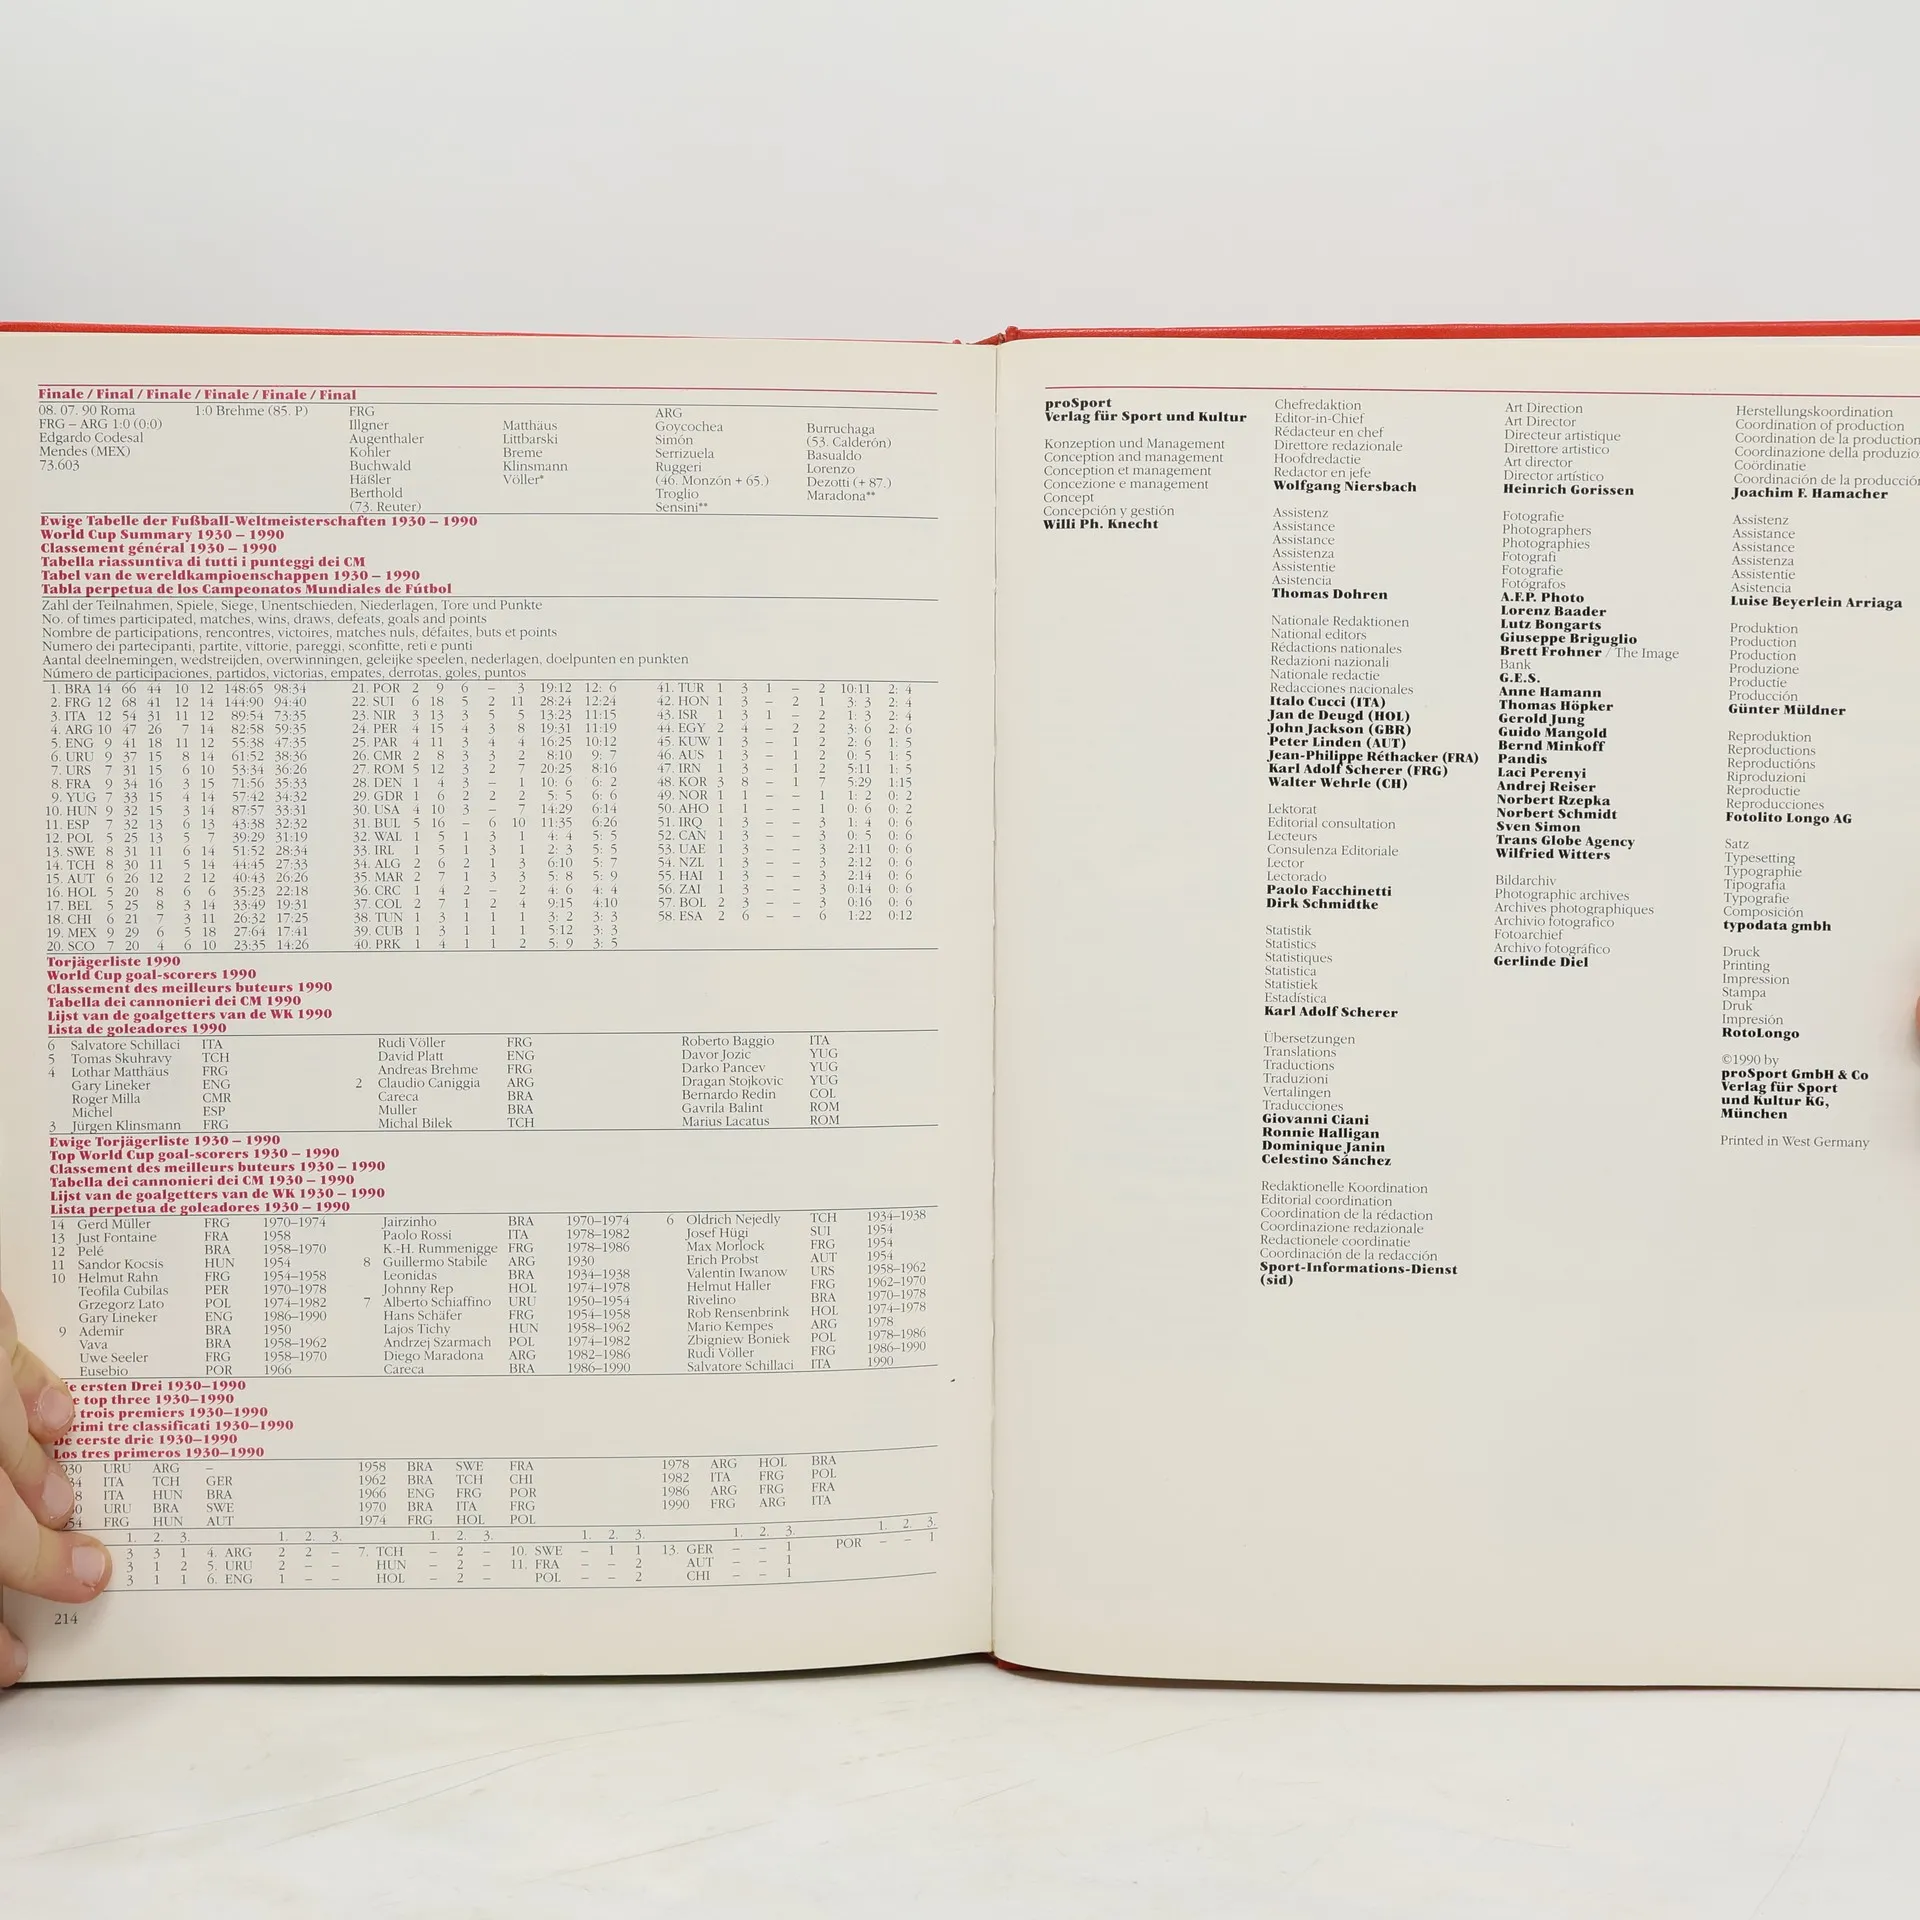 Finale / Final / Finale / Finale / Finale / Final
08. 07. 90 Roma 1:0 Brehme (85. P)
FRG – ARG 1:0 (0:0)
Edgardo Codesal
Mendes (MEX)
73.603
FRG
Illgner
Augenthaler
Kohler
Buchwald
Häßler
Berthold
(73. Reuter)
Matthäus
Littbarski
Breme
Klinsmann
Völler*
ARG
Goycochea
Simón
Serrizuela
Ruggeri
(46. Monzón + 65.)
Troglio
Sensini**
Burruchaga
(53. Calderón)
Basualdo
Lorenzo
Dezotti (+ 87.)
Maradona**
Ewige Tabelle der Fußball-Weltmeisterschaften 1930 – 1990
World Cup Summary 1930 – 1990
Classement général 1930 – 1990
Tabella riassuntiva di tutti i punteggi dei CM
Tabel van de wereldkampioenschappen 1930 – 1990
Tabla perpetua de los Campeonatos Mundiales de Fútbol
Zahl der Teilnahmen, Spiele, Siege, Unentschieden, Niederlagen, Tore und Punkte
No. of times participated, matches, wins, draws, defeats, goals and points
Nombre de participations, rencontres, victoires, matches nuls, défaites, buts et points
Numero dei partecipanti, partite, vittorie, pareggi, sconfitte, reti e punti
Aantal deelnemingen, wedstreijden, overwinningen, geleijke speelen, nederlagen, doelpunten en punkten
Número de participaciones, partidos, victorias, empates, derrotas, goles, puntos
1. BRA 14 66 44 10 12 148:65 98:34
2. FRG 12 68 41 12 14 144:90 94:40
3. ITA 12 54 31 11 12 89:54 73:35
4. ARG 10 47 26 7 14 82:58 59:35
5. ENG 9 41 18 11 12 55:38 47:35
6. URU 9 37 15 8 14 61:52 38:36
7. URS 7 31 15 6 10 53:34 36:26
8. FRA 9 34 16 3 15 71:56 35:33
9. YUG 7 33 15 4 14 57:42 34:32
10. HUN 9 32 15 3 14 87:57 33:31
11. ESP 7 32 13 6 13 43:38 32:32
12. POL 5 25 13 5 7 39:29 31:19
13. SWE 8 31 11 6 14 51:52 28:34
14. TCH 8 30 11 5 14 44:45 27:33
15. AUT 6 26 12 2 12 40:43 26:26
16. HOL 5 20 8 6 6 35:23 22:18
17. BEL 5 25 8 3 14 33:49 19:31
18. CHI 6 21 7 3 11 26:32 17:25
19. MEX 9 29 6 5 18 27:64 17:41
20. SCO 7 20 4 6 10 23:35 14:26
21. POR 2 9 6 – 3 19:12 12: 6
22. SUI 6 18 5 2 11 28:24 12:24
23. NIR 3 13 3 5 5 13:23 11:15
24. PER 4 15 4 3 8 19:31 11:19
25. PAR 4 11 3 4 4 16:25 10:12
26. CMR 2 8 3 3 2 8:10 9: 7
27. ROM 5 12 3 2 7 20:25 8:16
28. DEN 1 4 3 – 1 10: 6 6: 2
29. GDR 1 6 2 2 2 5: 5 6: 6
30. USA 4 10 3 – 7 14:29 6:14
31. BUL 5 16 – 6 10 11:35 6:26
32. WAL 1 5 1 3 1 4: 4 5: 5
33. IRL 1 5 1 3 1 2: 3 5: 5
34. ALG 2 6 2 1 3 6:10 5: 7
35. MAR 2 7 1 3 3 5: 8 5: 9
36. CRC 1 4 2 – 2 4: 6 4: 4
37. COL 2 7 1 2 4 9:15 4:10
38. TUN 1 3 1 1 1 3: 2 3: 3
39. CUB 1 3 1 1 1 5:12 3: 3
40. PRK 1 4 1 1 2 5: 9 3: 5
41. TUR 1 3 1 – 2 10:11 2: 4
42. HON 1 3 – 2 1 3: 3 2: 4
43. ISR 1 3 1 – 2 1: 3 2: 4
44. EGY 2 4 – 2 2 3: 6 2: 6
45. KUW 1 3 – 1 2 2: 6 1: 5
46. AUS 1 3 – 1 2 0: 5 1: 5
47. IRN 1 3 – 1 2 5:11 1: 5
48. KOR 3 8 – 1 7 5:29 1:15
49. NOR 1 1 – – 1 1: 2 0: 2
50. AHO 1 1 – – 1 0: 6 0: 2
51. IRQ 1 3 – – 3 1: 4 0: 6
52. CAN 1 3 – – 3 0: 5 0: 6
53. UAE 1 3 – – 3 2:11 0: 6
54. NZL 1 3 – – 3 2:12 0: 6
55. HAI 1 3 – – 3 2:14 0: 6
56. ZAI 1 3 – – 3 0:14 0: 6
57. BOL 2 3 – – 3 0:16 0: 6
58. ESA 2 6 – – 6 1:22 0:12
Torjägerliste 1990
World Cup goal-scorers 1990
Classement des meilleurs buteurs 1990
Tabella dei cannonieri dei CM 1990
Lijst van de goalgetters van de WK 1990
Lista de goleadores 1990
6 Salvatore Schillaci ITA
5 Tomas Skuhravy TCH
4 Lothar Matthäus FRG
Gary Lineker ENG
Roger Milla CMR
Michel ESP
3 Jürgen Klinsmann FRG
Rudi Völler FRG
David Platt ENG
Andreas Brehme FRG
2 Claudio Caniggia ARG
Careca BRA
Muller BRA
Michal Bilek TCH
Roberto Baggio ITA
Davor Jozic YUG
Darko Pancev YUG
Dragan Stojkovic YUG
Bernardo Redin COL
Gavrila Balint ROM
Marius Lacatus ROM
Ewige Torjägerliste 1930 – 1990
Top World Cup goal-scorers 1930 – 1990
Classement des meilleurs buteurs 1930 – 1990
Tabella dei cannonieri dei CM 1930 – 1990
Lijst van de goalgetters van de WK 1930 – 1990
Lista perpetua de goleadores 1930 – 1990
14 Gerd Müller FRG 1970–1974
13 Just Fontaine FRA 1958
12 Pelé BRA 1958–1970
11 Sandor Kocsis HUN 1954
10 Helmut Rahn FRG 1954–1958
Teofila Cubilas PER 1970–1978
Grzegorz Lato POL 1974–1982
Gary Lineker ENG 1986–1990
9 Ademir BRA 1950
Vava BRA 1958–1962
Uwe Seeler FRG 1958–1970
Eusebio POR 1966
Jairzinho BRA 1970–1974
Paolo Rossi ITA 1978–1982
K.-H. Rummenigge FRG 1978–1986
8 Guillermo Stabile ARG 1930
Leonidas BRA 1934–1938
Johnny Rep HOL 1974–1978
7 Alberto Schiaffino URU 1950–1954
Hans Schäfer FRG 1954–1958
Lajos Tichy HUN 1958–1962
Andrzej Szarmach POL 1974–1982
Diego Maradona ARG 1982–1986
Careca BRA 1986–1990
6 Oldrich Nejedly TCH 1934–1938
Josef Hügi SUI 1954
Max Morlock FRG 1954
Erich Probst AUT 1954
Valentin Iwanow URS 1958–1962
Helmut Haller FRG 1962–1970
Rivelino BRA 1970–1978
Rob Rensenbrink HOL 1974–1978
Mario Kempes ARG 1978
Zbigniew Boniek POL 1978–1986
Rudi Völler FRG 1986–1990
Salvatore Schillaci ITA 1990
ersten Drei 1930–1990
top three 1930–1990
trois premiers 1930–1990
primi tre classificati 1930–1990
De eerste drie 1930–1990
Los tres primeros 1930–1990
1930 URU ARG –
34 ITA TCH GER
8 ITA HUN BRA
0 URU BRA SWE
54 FRG HUN AUT
1958 BRA SWE FRA
1962 BRA TCH CHI
1966 ENG FRG POR
1970 BRA ITA FRG
1974 FRG HOL POL
1978 ARG HOL BRA
1982 ITA FRG POL
1986 ARG FRG FRA
1990 FRG ARG ITA
1. 2. 3. 1. 2. 3. 1. 2. 3. 1. 2. 3. 1. 2. 3. 1. 2. 3.
3 3 1 4. ARG 2 2 – 7. TCH – 2 – 10. SWE – 1 1 13. GER – – 1 POR – – 1
3 1 2 5. URU 2 – – HUN – 2 – 11. FRA – – 2 AUT – – 1
3 1 1 6. ENG 1 – – HOL – 2 – POL – – 2 CHI – – 1
214
proSport
Verlag für Sport und Kultur
Konzeption und Management
Conception and management
Conception et management
Concezione e management
Concept
Concepción y gestión
Willi Ph. Knecht
Chefredaktion
Editor-in-Chief
Rédacteur en chef
Direttore redazionale
Hoofdredactie
Redactor en jefe
Wolfgang Niersbach
Assistenz
Assistance
Assistance
Assistenza
Assistentie
Asistencia
Thomas Dohren
Nationale Redaktionen
National editors
Rédactions nationales
Redazioni nazionali
Nationale redactie
Redacciones nacionales
Italo Cucci (ITA)
Jan de Deugd (HOL)
John Jackson (GBR)
Peter Linden (AUT)
Jean-Philippe Réthacker (FRA)
Karl Adolf Scherer (FRG)
Walter Wehrle (CH)
Lektorat
Editorial consultation
Lecteurs
Consulenza Editoriale
Lector
Lectorado
Paolo Facchinetti
Dirk Schmidtke
Statistik
Statistics
Statistiques
Statistica
Statistiek
Estadística
Karl Adolf Scherer
Übersetzungen
Translations
Traductions
Traduzioni
Vertalingen
Traducciones
Giovanni Ciani
Ronnie Halligan
Dominique Janin
Celestino Sánchez
Redaktionelle Koordination
Editorial coordination
Coordination de la rédaction
Coordinazione redazionale
Redactionele coordinatie
Coordinación de la redacción
Sport-Informations-Dienst
(sid)
Art Direction
Art Director
Directeur artistique
Direttore artistico
Art director
Director artístico
Heinrich Gorissen
Fotografie
Photographers
Photographies
Fotografi
Fotografie
Fotógrafos
A.F.P. Photo
Lorenz Baader
Lutz Bongarts
Giuseppe Briguglio
Brett Frohner / The Image
Bank
G.E.S.
Anne Hamann
Thomas Höpker
Gerold Jung
Guido Mangold
Bernd Minkoff
Pandis
Laci Perenyi
Andrej Reiser
Norbert Rzepka
Norbert Schmidt
Sven Simon
Trans Globe Agency
Wilfried Witters
Bildarchiv
Photographic archives
Archives photographiques
Archivio fotografico
Fotoarchief
Archivo fotográfico
Gerlinde Diel
Herstellungskoordination
Coordination of production
Coordination de la production
Coordinazione della produzio
Coördinatie
Coordinación de la producción
Joachim F. Hamacher
Assistenz
Assistance
Assistance
Assistenza
Assistentie
Asistencia
Luise Beyerlein Arriaga
Produktion
Production
Production
Produzione
Productie
Producción
Günter Müldner
Reproduktion
Reproductions
Reproductións
Riproduzioni
Reproductie
Reproducciones
Fotolito Longo AG
Satz
Typesetting
Typographie
Tipografia
Typografie
Composición
typodata gmbh
Druck
Printing
Impression
Stampa
Druk
Impresión
RotoLongo
©1990 by
proSport GmbH & Co
Verlag für Sport
und Kultur KG,
München
Printed in West Germany